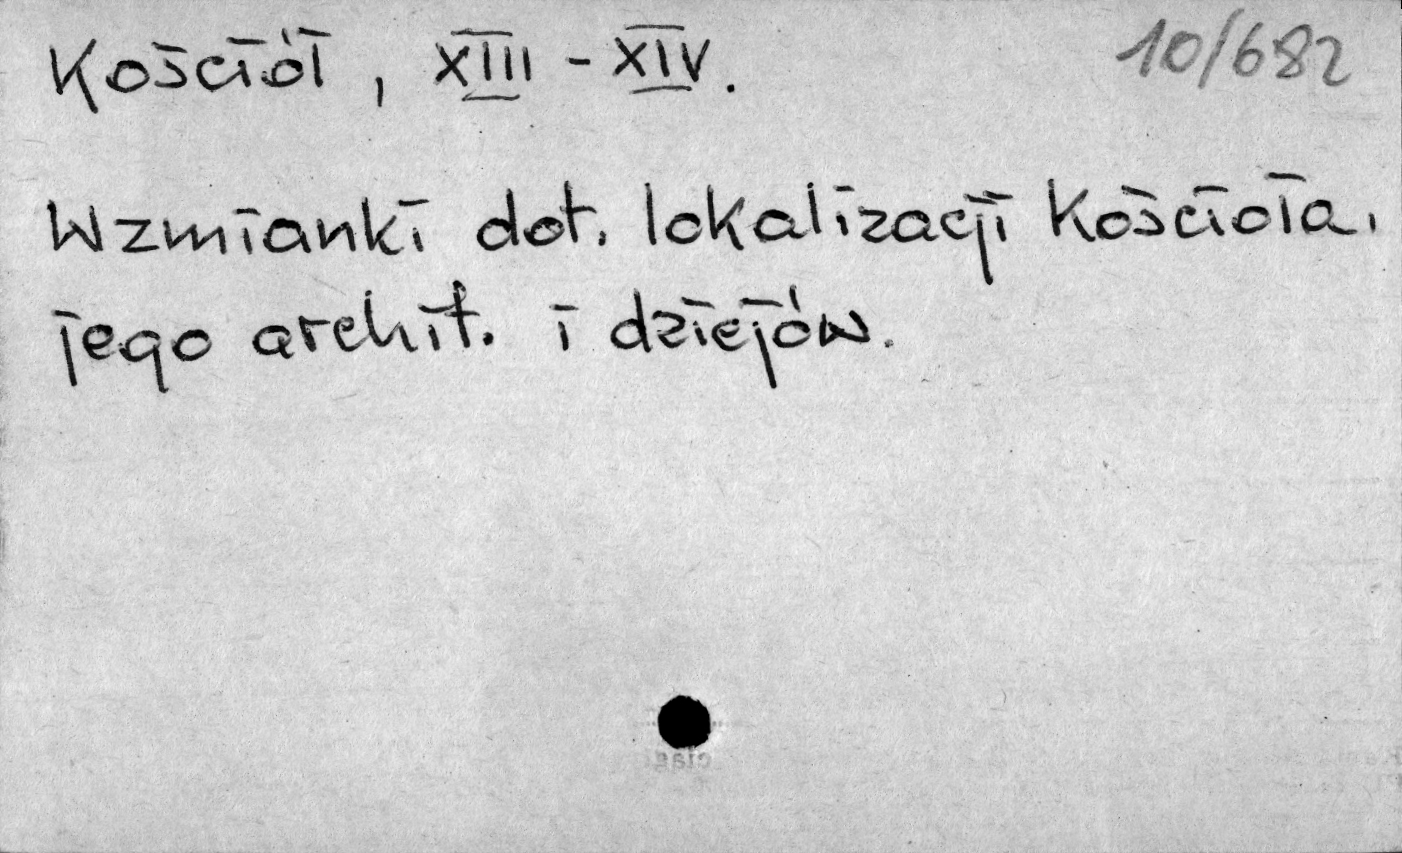 Kościół, XIII - XIV. 10/682
Wzmianki dot. lokalizacji kościoła,
jego archit. i dziejów.